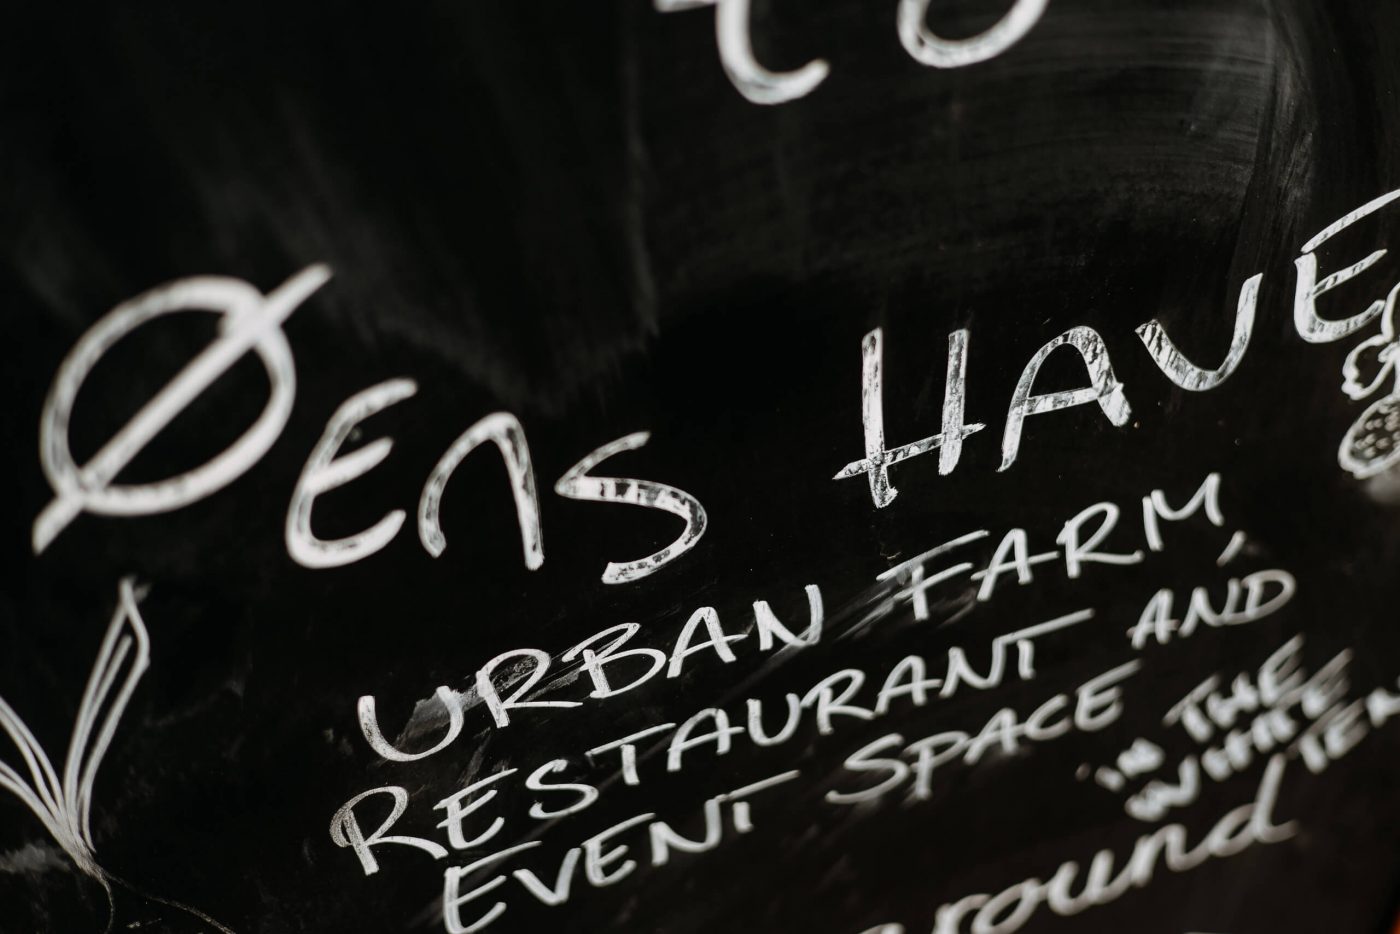 to
Øens Have
URBAN FARM,
RESTAURANT AND
EVENT SPACE
IN THE
WHITE
round